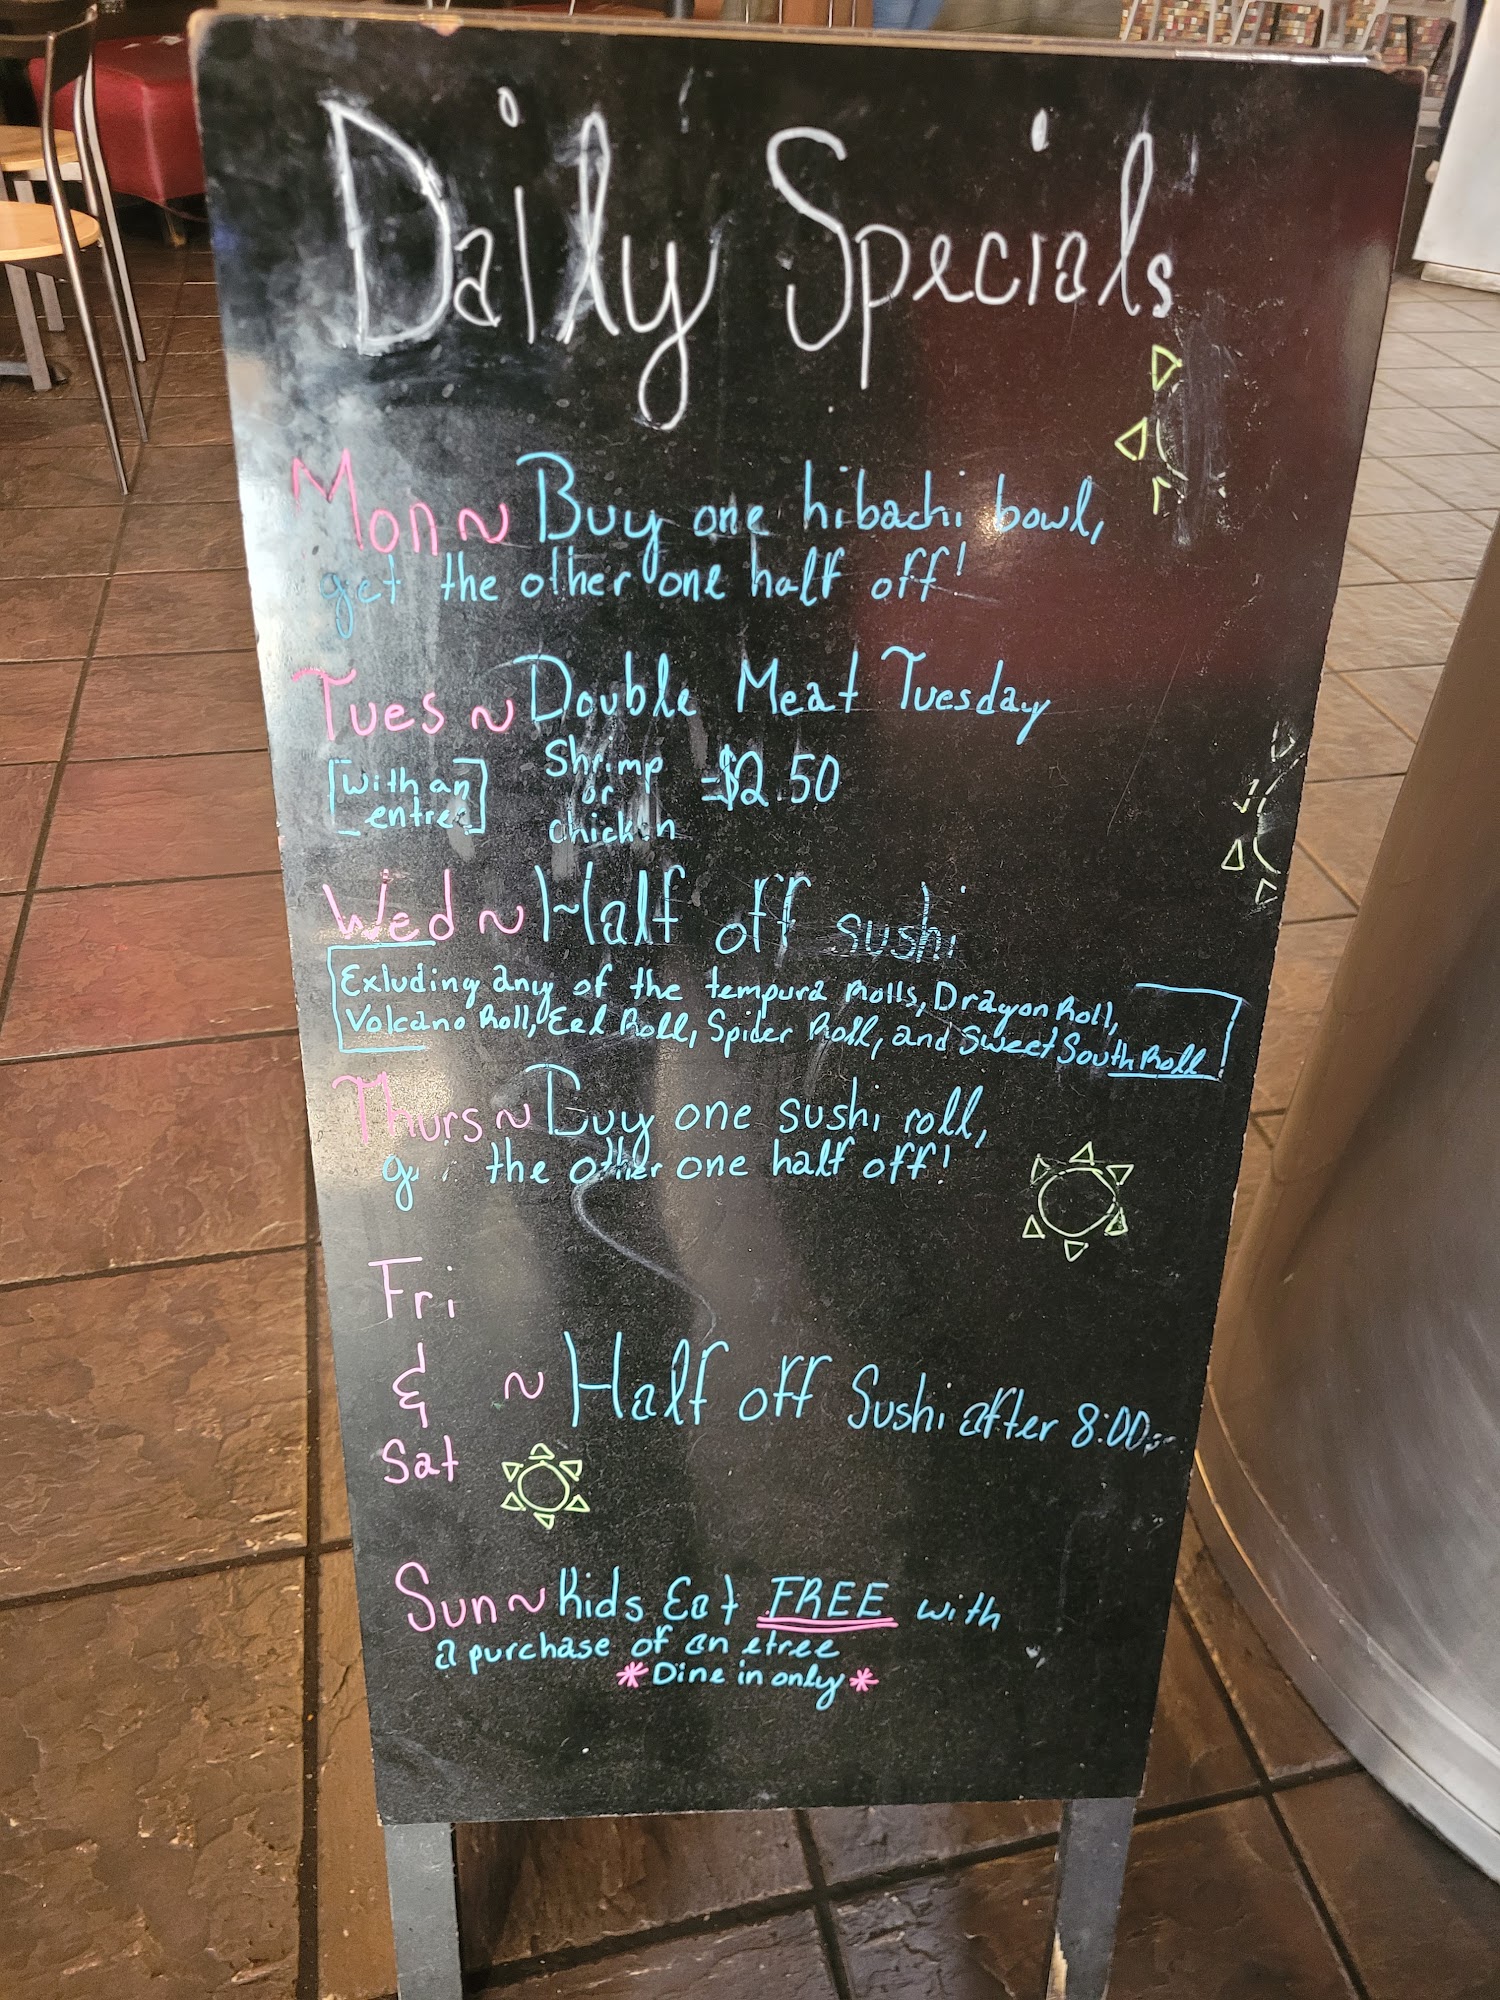 Daily Specials
Mon ~ Buy one hibachi bowl,
get the other one half off!
Tues ~ Double Meat Tuesday
[With an entree] Shrimp or chicken =$2.50
Wed ~ Half off sushi
[Exluding any of the tempura Rolls, Dragon Roll,
Volcano Roll, Eel Roll, Spider Roll, and Sweet South Roll]
Thurs ~ Buy one sushi roll,
the other one half off!
Fri
&
Sat
~ Half off Sushi after 8:00
Sun ~ Kids Eat FREE with
a purchase of an etree
*Dine in only*